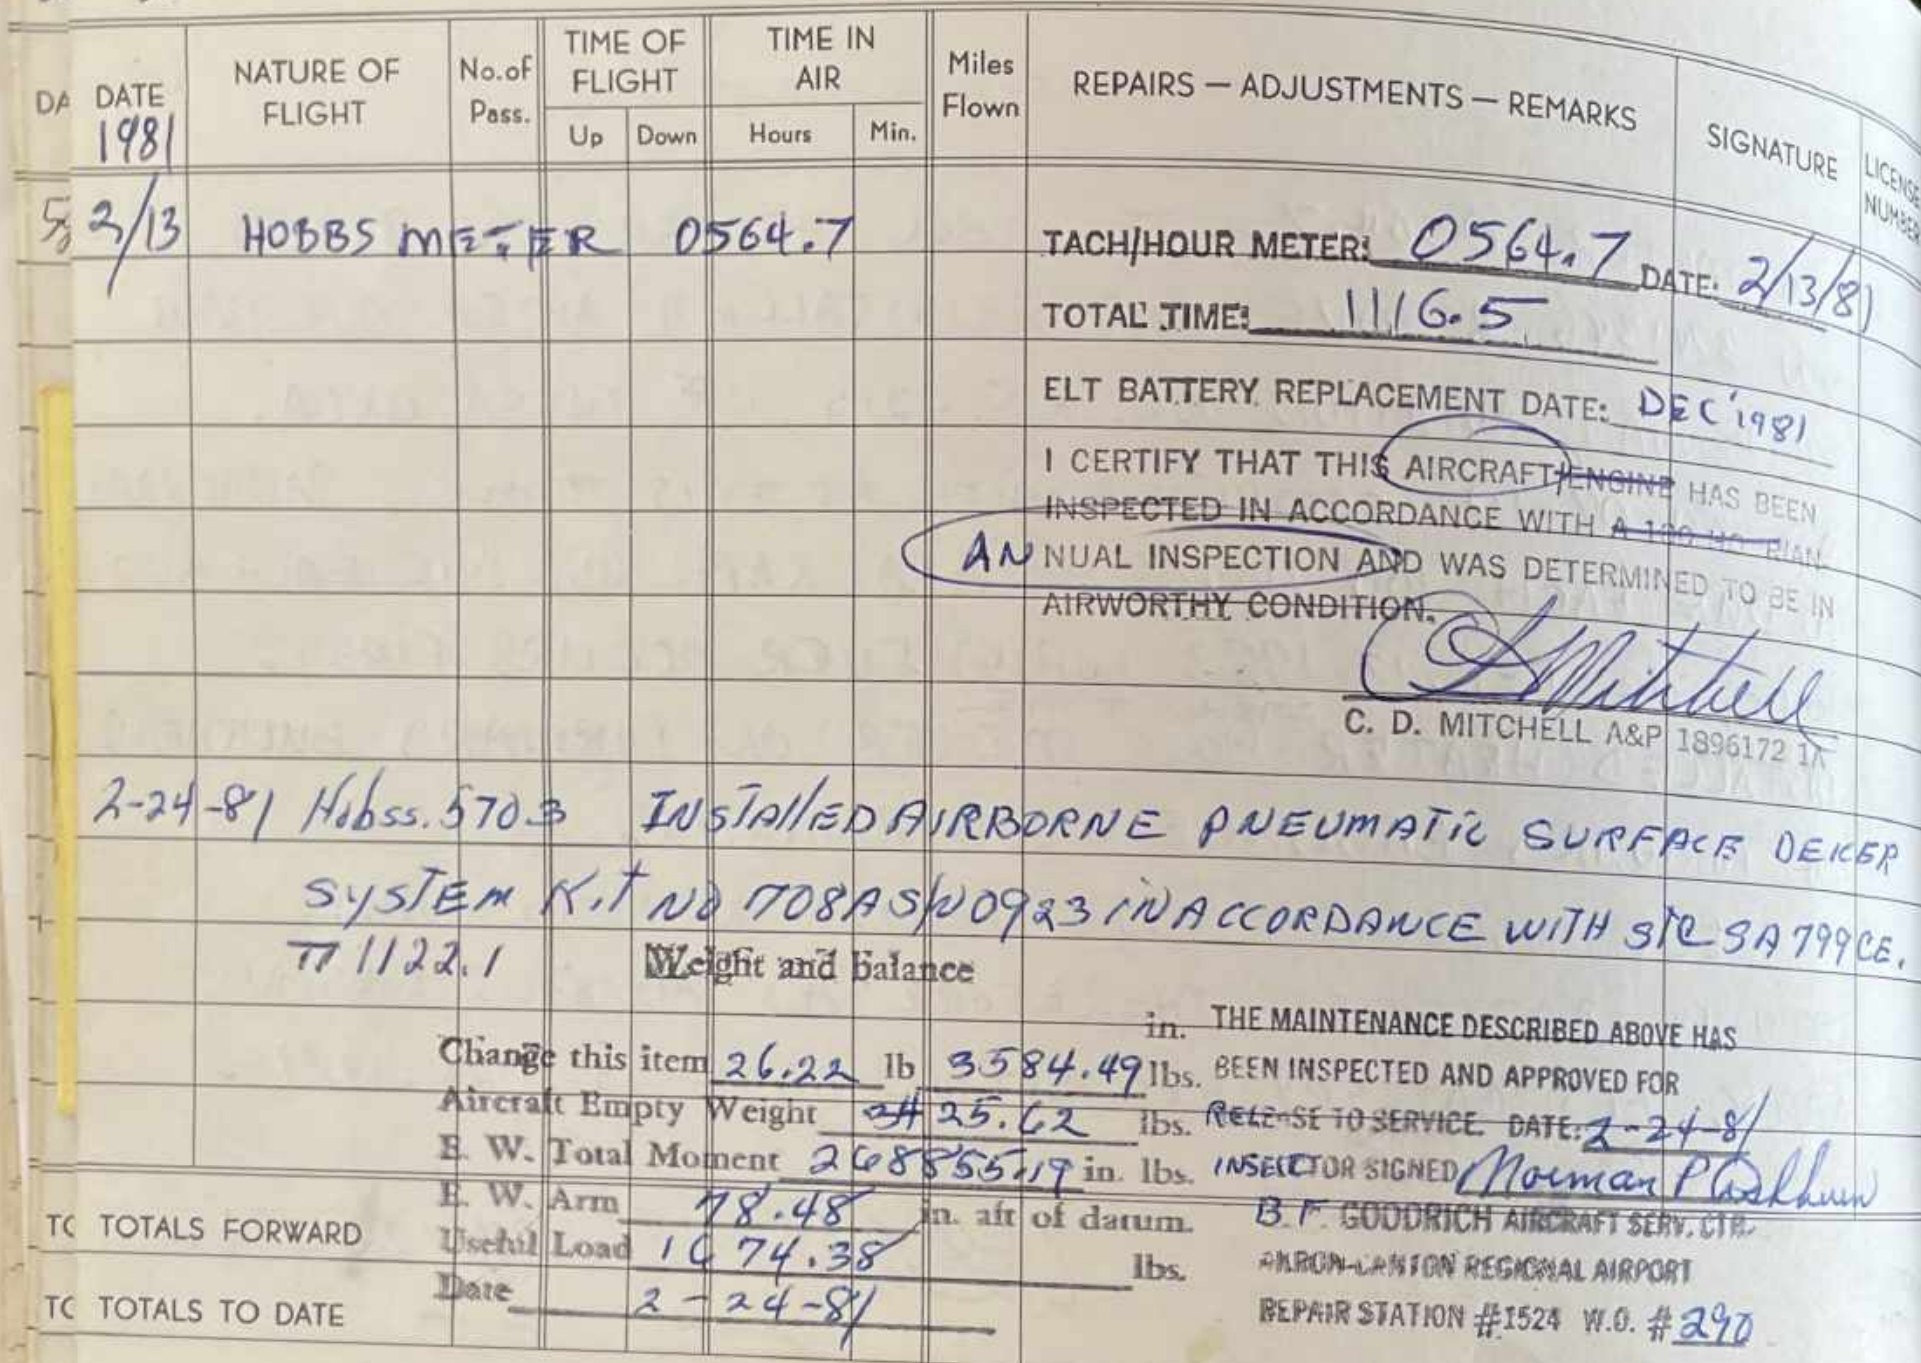 DATE
1981
NATURE OF FLIGHT
No. of Pass.
TIME OF FLIGHT
Up Down
TIME IN AIR
Hours Min.
Miles Flown
REPAIRS — ADJUSTMENTS — REMARKS
SIGNATURE
LICENSE NUMBER
DA
2/13 HOBBS METER 0564.7
TACH/HOUR METER: 0564.7 DATE: 2/13/81
TOTAL TIME: 1116.5
ELT BATTERY REPLACEMENT DATE: DEC '1981
I CERTIFY THAT THIS AIRCRAFT/ENGINE HAS BEEN
INSPECTED IN ACCORDANCE WITH A 100 HO
ANNUAL INSPECTION AND WAS DETERMINED TO BE IN
AIRWORTHY CONDITION.
C D Mitchell
C. D. MITCHELL A&P 1896172 IA
2-24-81 Hobss. 570.3 INSTAllED AIRBORNE PNEUMATIC SURFACE DEICER
SYSTEM KIT NO 708A S/N 0923 IN ACCORDANCE WITH STC SA799CE.
TT 1122.1 Weight and balance
Change this item 26.22 lb 3584.49 in. lbs.
Aircraft Empty Weight 3425.62 lbs.
E. W. Total Moment 268855.19 in. lbs.
E. W. Arm 78.48 in. aft of datum.
Useful Load 1674.38 lbs.
Date 2-24-81
THE MAINTENANCE DESCRIBED ABOVE HAS
BEEN INSPECTED AND APPROVED FOR
RELEASE TO SERVICE. DATE: 2-24-81
INSPECTOR SIGNED Norman P
B. F. GOODRICH AIRCRAFT SERV. CTR.
AKRON-CANTON REGIONAL AIRPORT
REPAIR STATION #1524 W.O. # 290
TO TOTALS FORWARD
TO TOTALS TO DATE